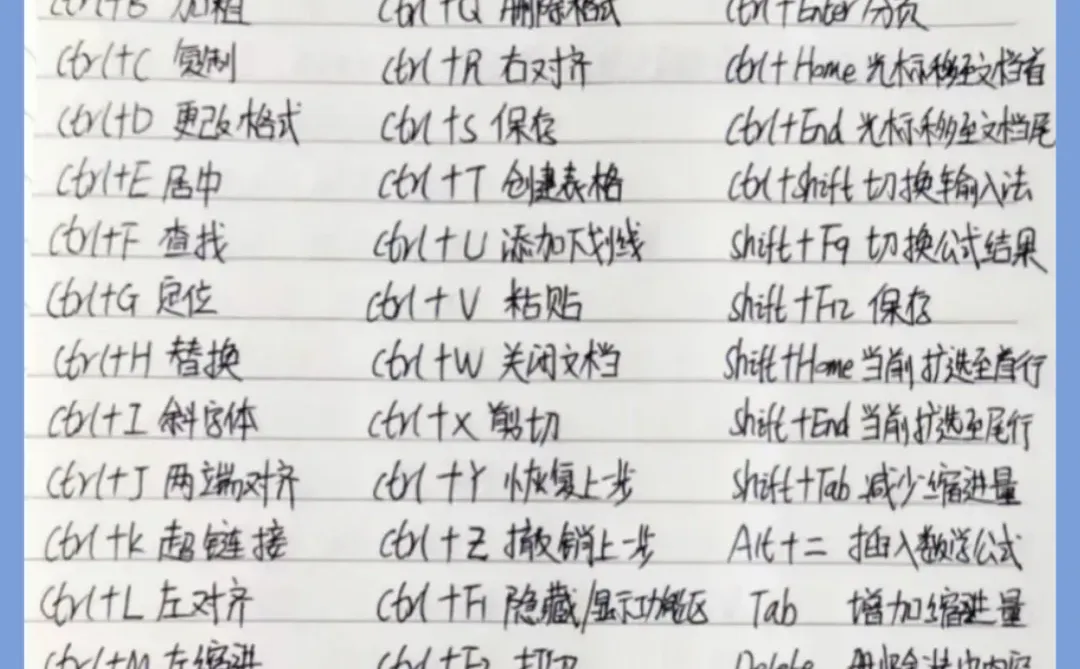 Ctrl+B 加粗 Ctrl+Q 删除格式 Ctrl+Enter 分页
Ctrl+C 复制 Ctrl+R 右对齐 Ctrl+Home 光标移至文档首
Ctrl+D 更改格式 Ctrl+S 保存 Ctrl+End 光标移至文档尾
Ctrl+E 居中 Ctrl+T 创建表格 Ctrl+Shift 切换输入法
Ctrl+F 查找 Ctrl+U 添加下划线 Shift+F9 切换公式结果
Ctrl+G 定位 Ctrl+V 粘贴 Shift+F12 保存
Ctrl+H 替换 Ctrl+W 关闭文档 Shift+Home 当前扩选至首行
Ctrl+I 斜字体 Ctrl+X 剪切 Shift+End 当前扩选至尾行
Ctrl+J 两端对齐 Ctrl+Y 恢复上一步 Shift+Tab 减少缩进量
Ctrl+K 超链接 Ctrl+Z 撤销上一步 Alt+= 插入数学公式
Ctrl+L 左对齐 Ctrl+F1 隐藏/显示功能区 Tab 增加缩进量
Ctrl+M 左缩进 Ctrl+F2 打印 Delete 删除选中内容